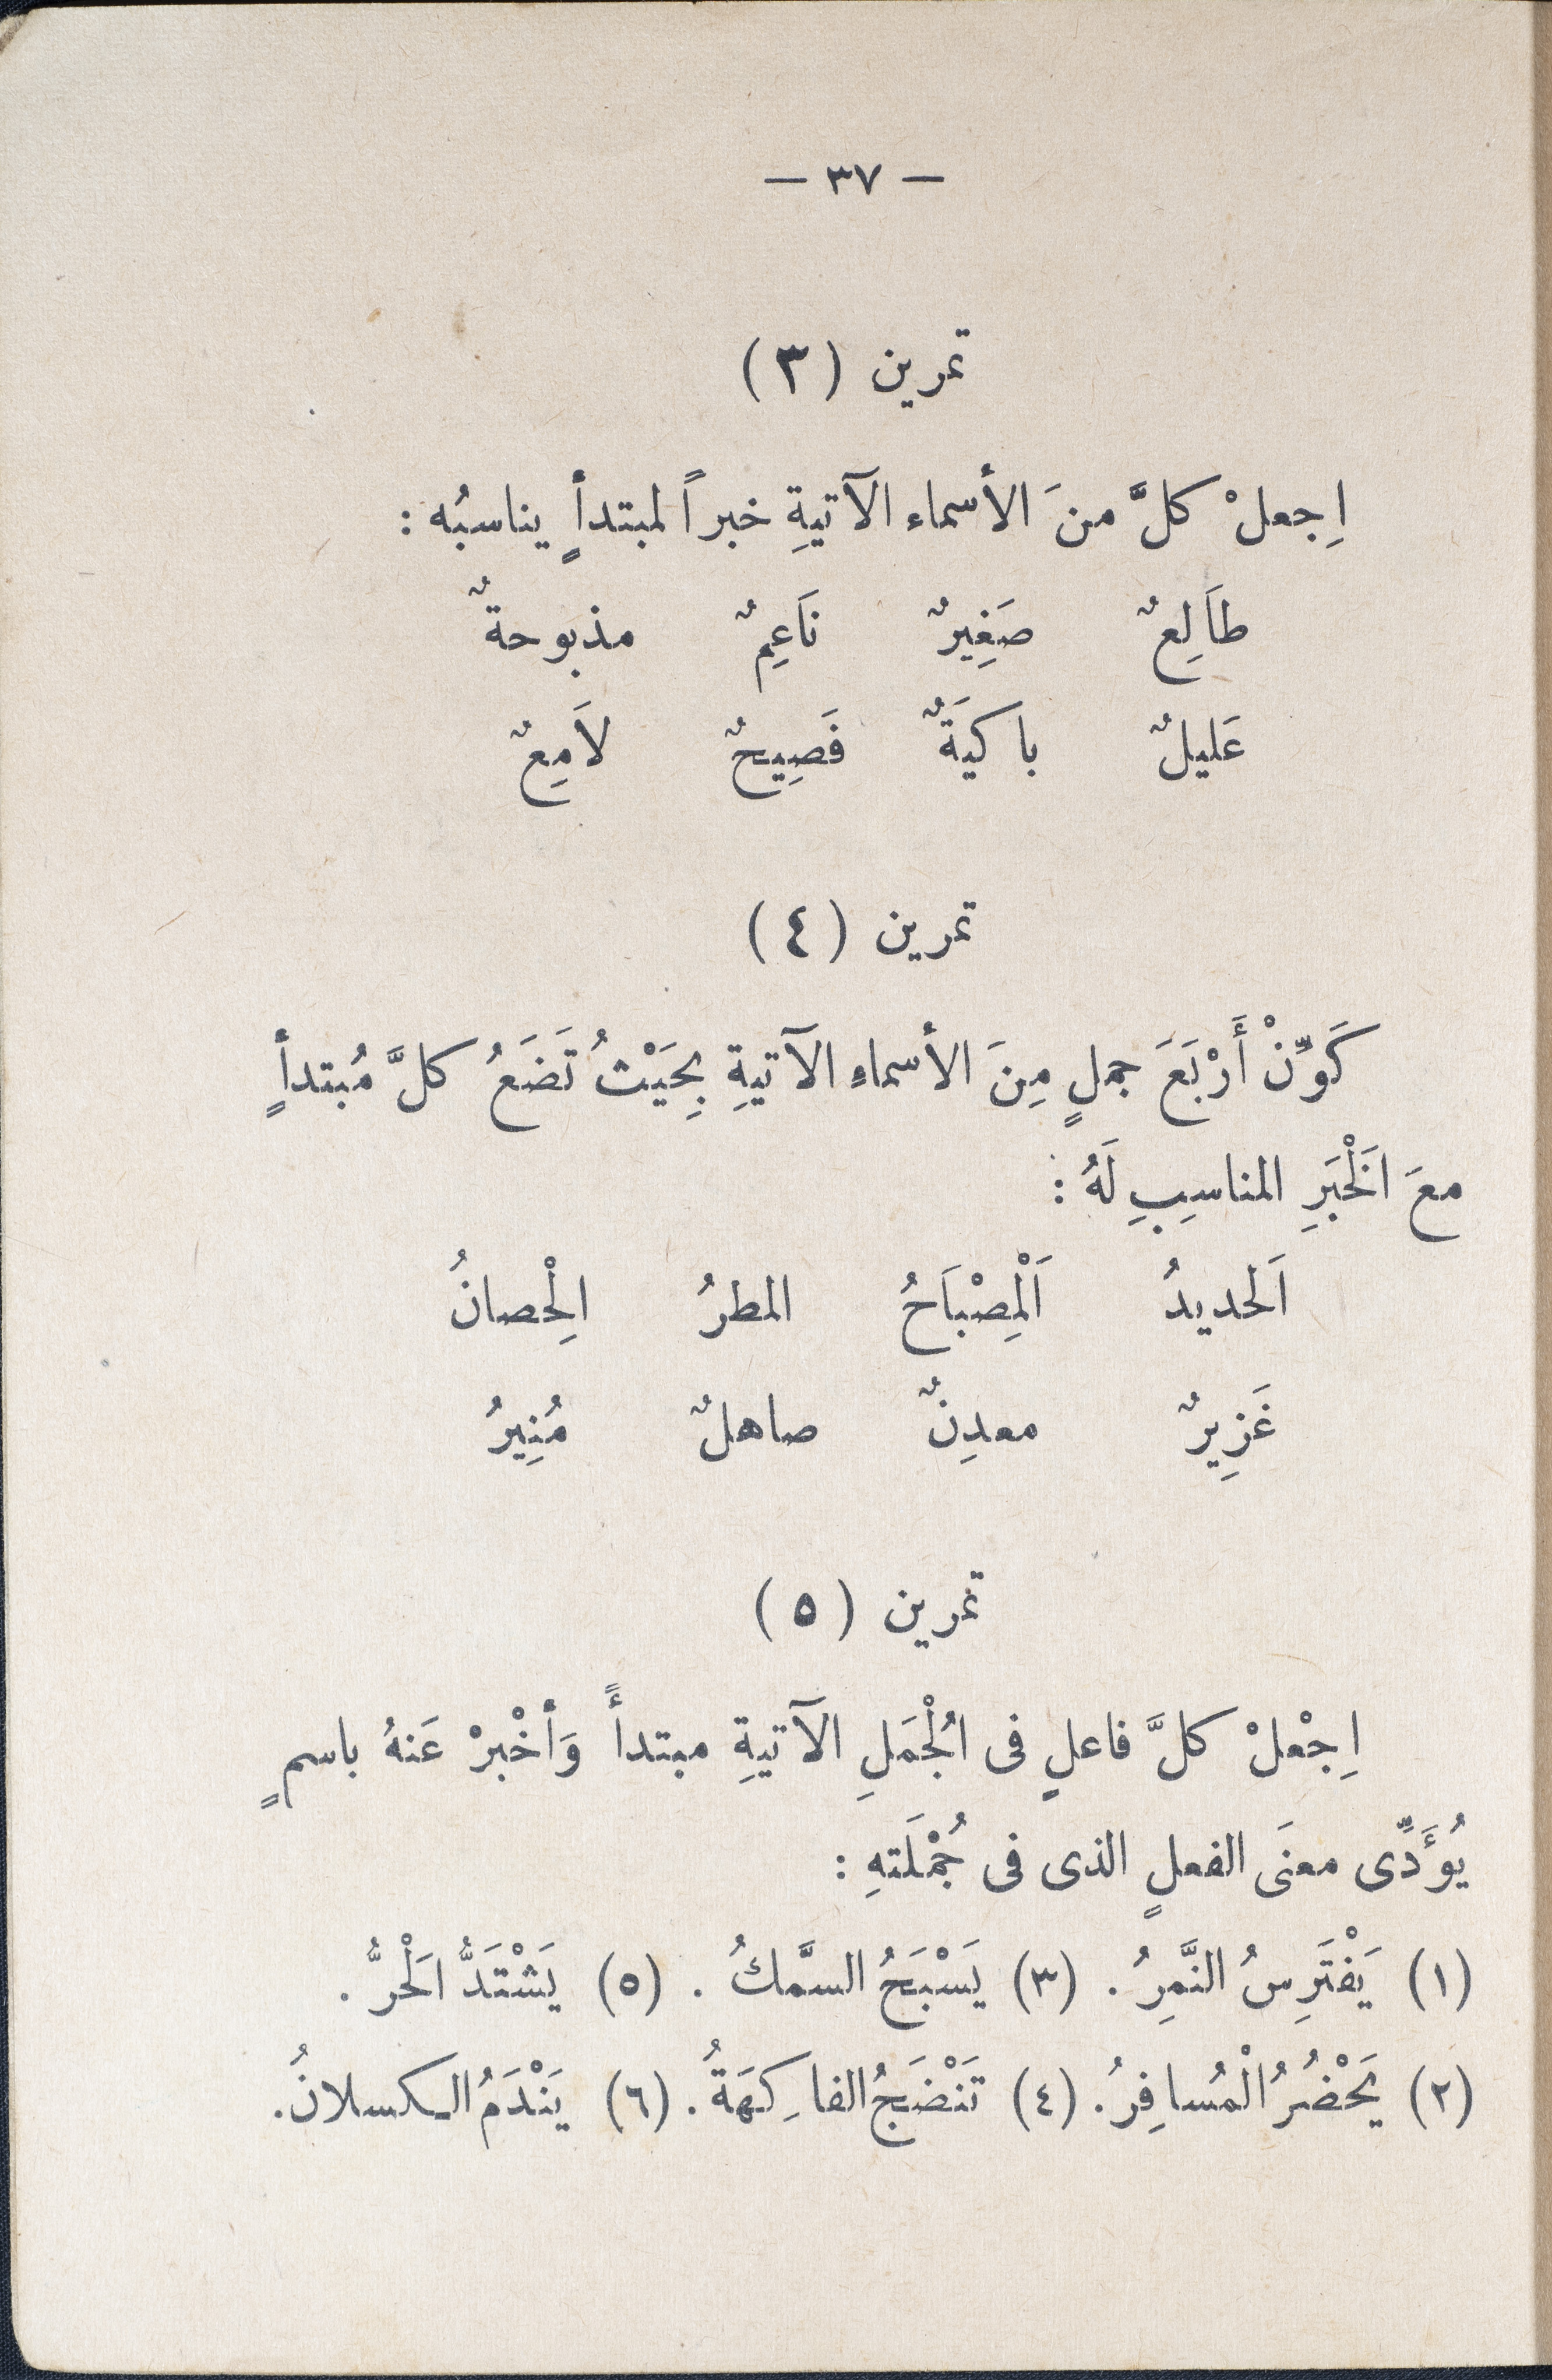 — ٣٧ —
تمرين (٣)
اِجعلْ كلَّ منَ الأسماء الآتيةِ خبراً لمبتدأٍ يناسبُه :
طَالِعٌ صَغِيرٌ نَاعِمٌ مذبوحةٌ
عَليلٌ باكيَةٌ فَصِيحٌ لاَمِعٌ
تمرين (٤)
كَوِّنْ أَرْبَعَ جملٍ مِنَ الأسماءِ الآتيةِ بِحَيْثُ تَضَعُ كلَّ مُبتدأٍ
معَ الخَبَرِ المناسِبِ لَهُ :
اَلحديدُ اَلْمِصْبَاحُ المطرُ الْحِصانُ
غَزِيرٌ معدِنٌ صاهلٌ مُنِيرُ
تمرين (٥)
اِجْعلْ كلَّ فاعلٍ فى الْجُمَلِ الآتيةِ مبتدأً وَأخْبرْ عَنهُ باسمٍ
يُؤَدِّى معنَى الفعلِ الذى فى جُمْلَتهِ :
(١) يَفْتَرِسُ النَّمِرُ . (٣) يَسْبَحُ السَّمكُ . (٥) يَشْتَدُّ الْحَرُّ .
(٢) يَحْضُرُ الْمُسافِرُ . (٤) تَنْضَجُ الفاكِهَةُ . (٦) يَنْدَمُ الكسلانُ .